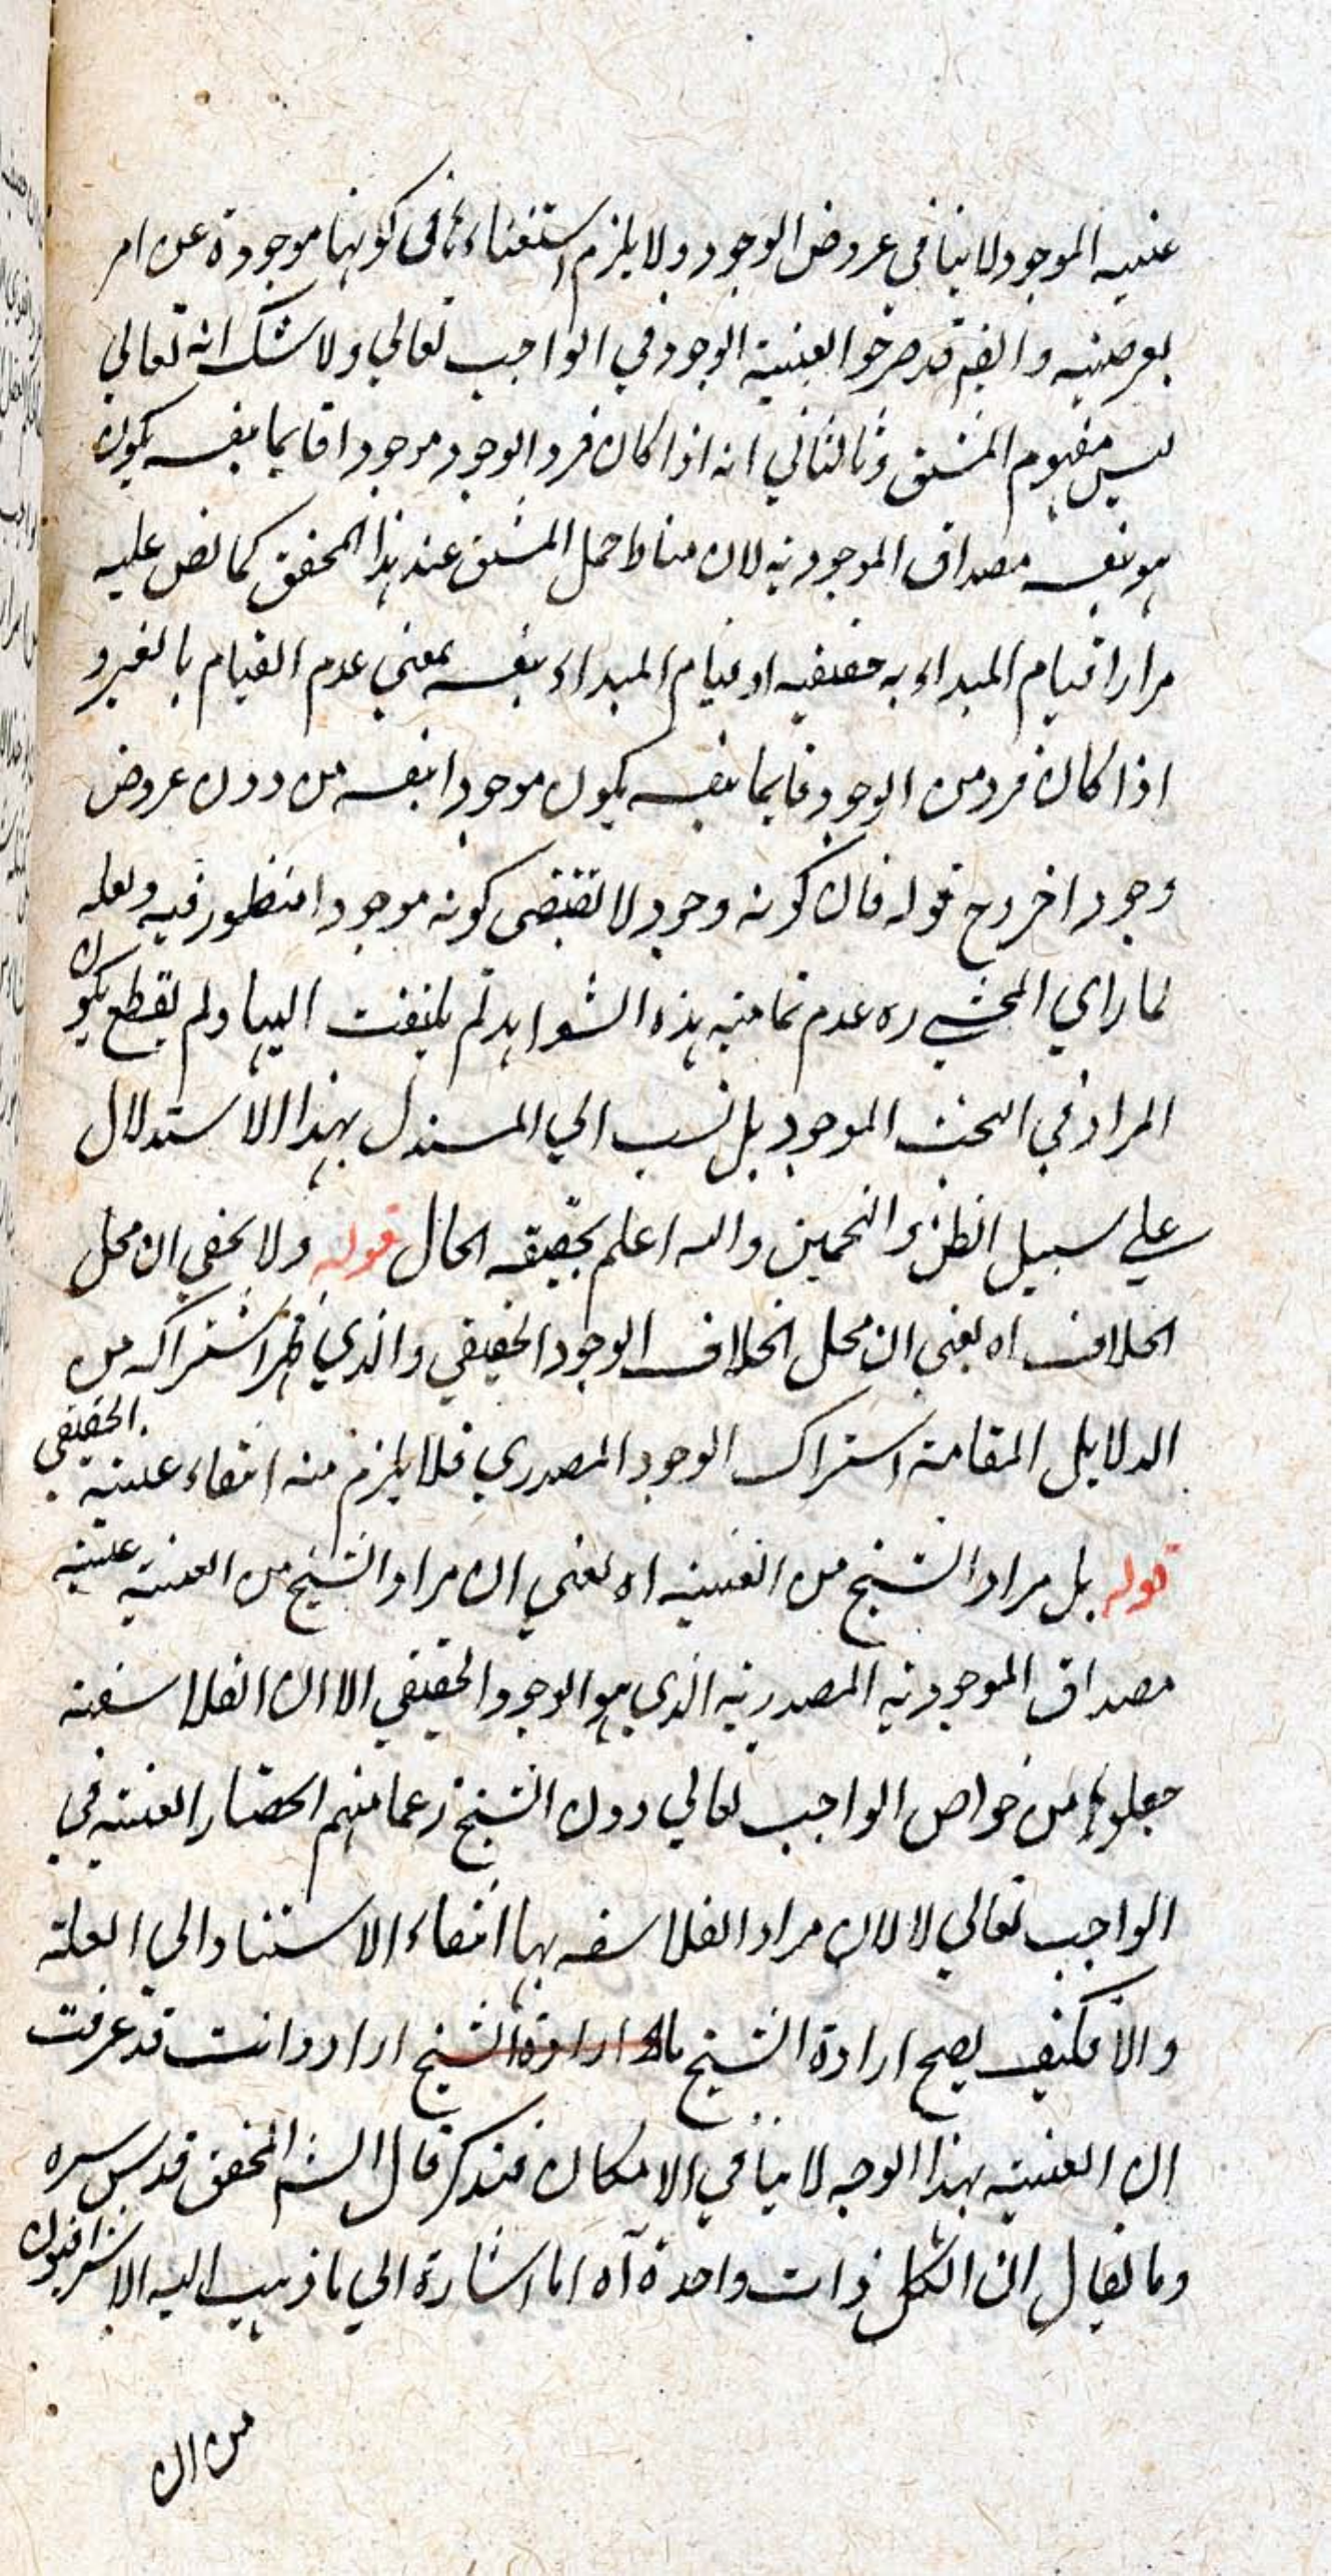 عينية الموجود لا ينافي عروض الوجود ولا يلزم استغناءها في كونها موجودة عن امر
يعرضه وايضم قد صرحوا بعينية الوجود في الواجب تعالي ولا شك انه تعالي
ليس مفهوم المشتق وثا لثاني انه اذا كان فرد الوجود موجودا قايما بنفسه يكون
هو بنفسه مصداق الموجودية لان مناط حمل المشتق عند هذا المحقق كما نص عليه
مرارا قيام المبداء به حقيقية او قيام المبداء بنفسه بمعني عدم القيام بالغير و
اذا كان فرد من الوجود قايما بنفسه يكون موجودا بنفسه من دون عروض
وجود اخر وح قوله فان كونه وجود لا تقتضي كونه موجودا منظور فيه ولعله
لما راي المحشي ره عدم تمامية هذه الشواهد لم يلتفت اليها ولم يقطع بكون
المراد في البحث الموجود بل نسب الي المستدل بهذا الاستدلال
علي سبيل الظن والتخمين والله اعلم بحقيقه الحال قوله ولا يخفي ان محل
الخلاف اه يعني ان محل الخلاف الوجود الحقيقي والذي ظهر اشتراكه من
الدلايل المقامة اشتراك الوجود المصدري فلا يلزم منه انتفاء عينية الحقيقي
قوله بل مراد الشيخ من العينية اه يعني ان مراد الشيخ من العينية عينية
مصداق الموجودية المصدرية الذي هو الوجود الحقيقي الا ان الفلاسفة
جعلوها من خواص الواجب تعالي دون الشيخ زعما منهم انحصار العينية في
الواجب تعالي لا لان مراد الفلاسفه بها انتفاء الاستناد الي العلة
والا فكيف يصح ارادة الشيخ ما ارادوا وانت قد عرفت
ان العينية بهذا الوجه لا ينافي الامكان فتذكر قال الشم المحقق قدس سره
وما يقال ان الكل ذات واحدة آه اما اشارة الي ما ذهب اليه الاشراقيون
من ان